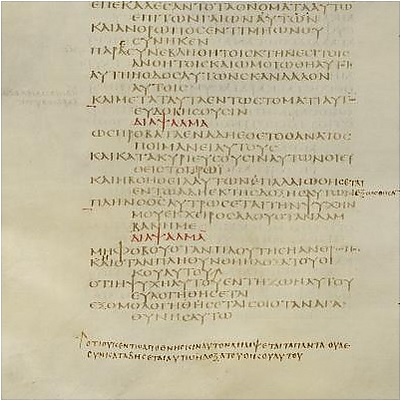 ΕΠΕΚΑΛΕϹΑΝΤΟΤΑΟΝΟΜΑΤΑΑΥΤΩ
ΕΠΙΤΩΝΓΑΙΩΝΑΥΤΩΝ
ΚΑΙΑΝΘΡΩΠΟϹΕΝΤΙΜΗΩΝΟΥ
ϹΥΝΗΚΕΝ
ΠΑΡΑϹΥΝΕΒΛΗΘΗΤΟΙϹΚΤΗΝΕϹΙΤΟΙϹ
ΑΝΟΗΤΟΙϹΚΑΙΩΜΟΙΩΘΗΑΥΤΟΙϹ
ΑΥΤΗΗΟΔΟϹΑΥΤΩΝϹΚΑΝΔΑΛΟΝ
ΑΥΤΟΙϹ
ΚΑΙΜΕΤΑΤΑΥΤΑΕΝΤΩϹΤΟΜΑΤΙΑΥΤΩ
ΕΥΔΟΚΗϹΟΥϹΙΝ
ΔΙΑΨΑΛΜΑ
ΩϹΠΡΟΒΑΤΑΕΝΑΔΗΕΘΕΝΤΟΘΑΝΑΤΟϹ
ΠΟΙΜΑΝΕΙΑΥΤΟΥϹ
ΚΑΙΚΑΤΑΚΥΡΙΕΥϹΟΥϹΙΝΑΥΤΩΝΟΙΕΥ
ΘΕΙϹΤΟΠΡΩΙ
ΚΑΙΗΒΟΗΘΕΙΑΑΥΤΩΝΠΑΛΑΙΩΘΗϹΕΤΑΙ
ΕΝΤΩΑΔΗΕΚΤΗϹΔΟΞΗϹΑΥΤΩΝ
ΠΛΗΝΟΘϹΛΥΤΡΩϹΕΤΑΙΤΗΝΨΥΧΗΝ
ΜΟΥΕΚΧΕΙΡΟϹΑΔΟΥΟΤΑΝΛΑΜ
ΒΑΝΗΜΕ
ΔΙΑΨΑΛΜΑ
ΜΗΦΟΒΟΥΟΤΑΝΠΛΟΥΤΗϹΗΑΝΘΡΩΠΟϹ
ΚΑΙΟΤΑΝΠΛΗΘΥΝΘΗΗΔΟΞΑΤΟΥΟΙ
ΚΟΥΑΥΤΟΥ
ΟΤΙΗΨΥΧΗΑΥΤΟΥΕΝΤΗΖΩΗΑΥΤΟΥ
ΕΥΛΟΓΗΘΗϹΕΤΑΙ
ΕΞΟΜΟΛΟΓΗϹΕΤΑΙϹΟΙΟΤΑΝΑΓΑ
ΘΥΝΗϹΑΥΤΩ
ΟΤΙΟΥΚΕΝΤΩΑΠΟΘΝΗϹΚΙΝΑΥΤΟΝΛΗΜΨΕΤΑΙΤΑΠΑΝΤΑ ΟΥΔΕ
ϹΥΝΚΑΤΑΒΗϹΕΤΑΙΑΥΤΩΗΔΟΞΑΤΟΥΟΙΚΟΥΑΥΤΟΥ